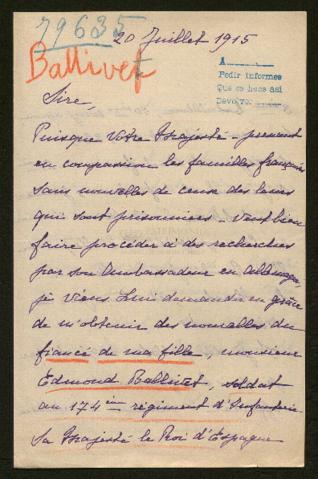 79635
Ballivet
20 Juillet 1915
A
Pedir informes
Que se hace asi
Devolver
Sire,
Puisque Votre Majesté - prenant
en compassion les familles françaises
sans nouvelles de ceux des leurs
qui sont prisonniers - veut bien
faire procéder à des recherches
par son Ambassadeur en Allemagne,
je viens Lui demander en grâce
de m'obtenir des nouvelles du
fiancé de ma fille, monsieur
Edmond Ballivet, soldat
au 174ième régiment d'Infanterie
Sa Majesté le Roi d'Espagne